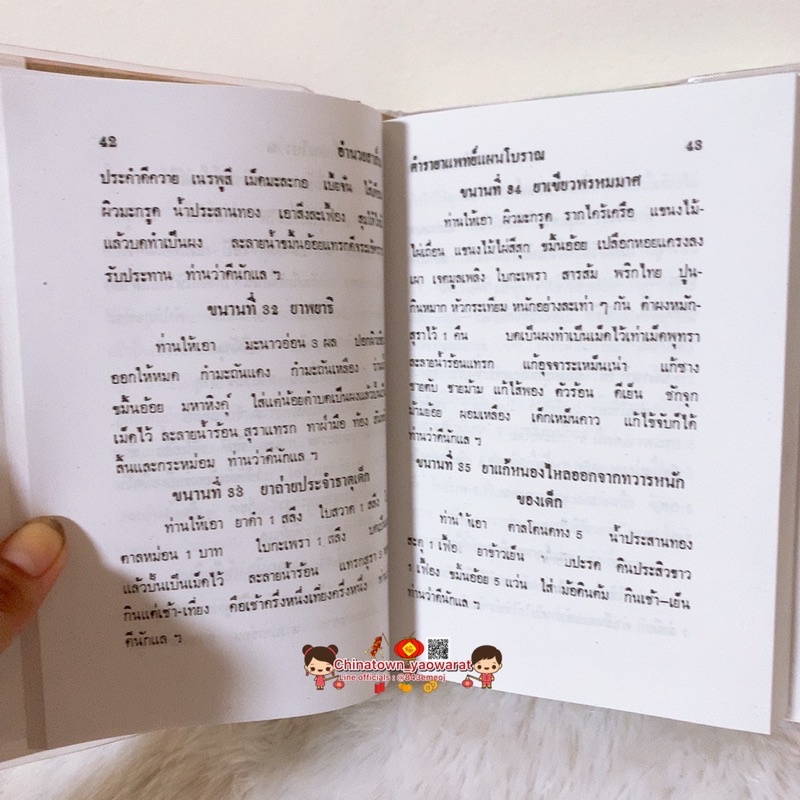 42
อำนวยสาส์น
ประคำดีควาย เนรพูสี เม็ดมะละกอ เบี้ยจั่น
ผิวมะกรูด น้ำประสานทอง เอาสิ่งละเฟื้อง
แล้วบดทำเป็นผง ละลายน้ำขมิ้นอ้อยแทรกดีจระเข้
รับประทาน ท่านว่าดีนักแล ฯ
ขนานที่ 32 ยาพยาธิ
ท่านให้เอา มะนาวอ่อน 3 ผล ปอกผิว
ออกให้หมด กำมะถันแดง กำมะถันเหลือง
ขมิ้นอ้อย มหาหิงคุ์ ใส่แต่น้อยตำบดเป็นผงแล้วปั้น
เม็ดไว้ ละลายน้ำร้อน สุราแทรก ทาฝ่ามือ ท้อง
ลิ้นและกระหม่อม ท่านว่าดีนักแล ฯ
ขนานที่ 33 ยาถ่ายประจำธาตุเด็ก
ท่านให้เอา ยาดำ 1 สลึง ใบสวาด 1 สลึง
ตาลหม่อน 1 บาท ใบกะเพรา 1 สลึง
แล้วปั้นเป็นเม็ดไว้ ละลายน้ำร้อน แทรกสุรา 3
กินแต่เช้า-เที่ยง คือเช้าครึ่งหนึ่งเที่ยงครึ่งหนึ่ง
ดีนักแล ฯ
ตำรายาแพทย์แผนโบราณ
43
ขนานที่ 34 ยาเขียวพรหมมาศ
ท่านให้เอา ผิวมะกรูด รากไคร้เครือ แขนงไม้-
ไผ่เถื่อน แขนงไม้ไผ่สีสุก ขมิ้นอ้อย เปลือกหอยแครงลง
เผา เจตมูลเพลิง ใบกะเพรา สารส้ม พริกไทย ปูน-
กินหมาก หัวกระเทียม หนักอย่างละเท่า ๆ กัน ตำผงหมัก-
สุราไว้ 1 คืน บดเป็นผงทำเป็นเม็ดไว้เท่าเม็ดพุทรา
ละลายน้ำร้อนแทรก แก้อุจจาระเหม็นเน่า แก้ซาง
ชายตับ ชายม้าม แก้ไส้พอง ตัวร้อน ตีเย็น ชักจุก
ม้ามย้อย ผอมเหลือง เด็กเหม็นคาว แก้ไข้จับก็ได้
ท่านว่าดีนักแล ฯ
ขนานที่ 35 ยาแก้หนองไหลออกจากทวารหนัก
ของเด็ก
ท่านให้เอา ตาลโตนดทั้ง 5 น้ำประสานทอง
สะตุ 1 เฟื้อง ยาข้าวเย็น สับปะรด ดินประสิวขาว
1 เฟื้อง ขมิ้นอ้อย 5 แว่น ใส่หม้อดินต้ม กินเช้า-เย็น
ท่านว่าดีนักแล ฯ
Chinatown_yaowarat
Line officials : @843emeoj